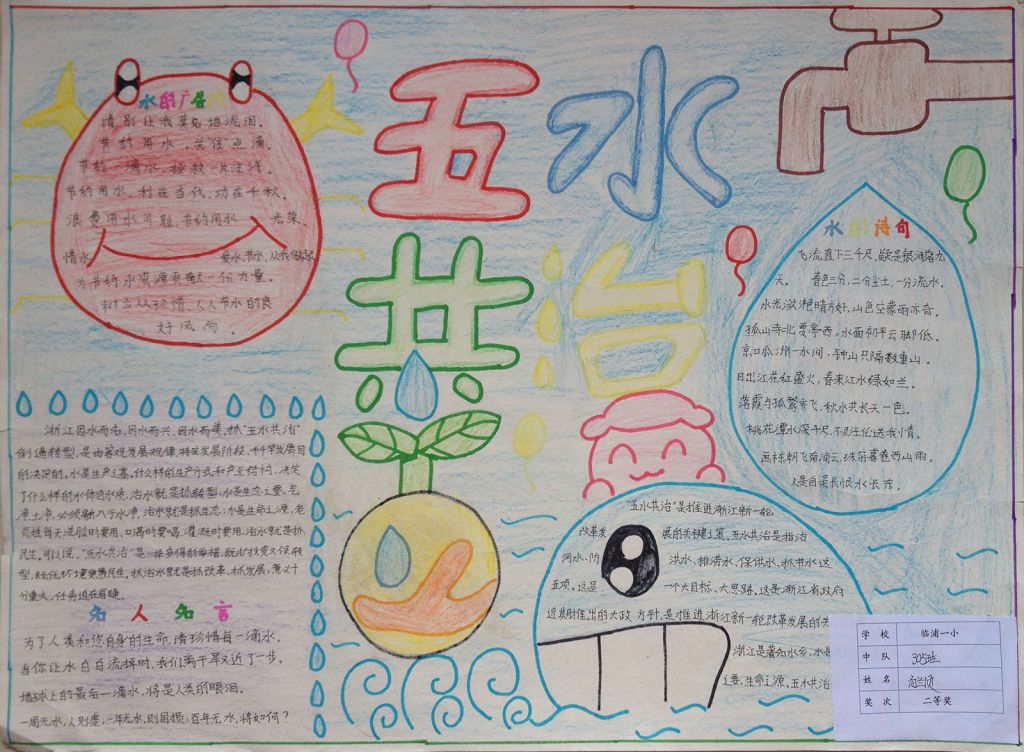 五水共治
水的广告
请别让我莫名地流泪。
节约用水,关住"点"滴。
节约一滴水,拯救一片汪洋。
节约用水,利在当代,功在千秋。
浪费用水可耻,节约用水 光荣。
惜水 爱水,节水,从我做起
为节约水资源贡献一份力量。
树立从珍惜、人人节水的良
好风尚。
水的诗句
飞流直下三千尺,疑是银河落九
天。 春色三分,二分尘土,一分流水。
水光潋滟晴方好,山色空蒙雨亦奇。
孤山寺北贾亭西,水面初平云脚低。
京口瓜洲一水间,钟山只隔数重山。
日出江花红盛火,春来江水绿如兰。
落霞与孤鹜齐飞,秋水共长天一色。
桃花潭水深千尺,不及汪伦送我情。
画栋朝飞南浦云,珠帘暮卷西山雨。
人生自是长恨水长东。
浙江因水而名、因水而兴、因水而美,抓"五水共治"
倒逼转型,是由客观发展规律、特定发展阶段、科学发展目
的决定的。水是生产之基,什么样的生产方式和产业结构,决定
了什么样的水体的水质,治水就是抓转型;水是生态之要,气
净土净,必须融入于水净,治水就是抓生态;水是生命之源,老
百姓每天洗脸时要用、口渴时要喝、灌溉时要用,治水就是抓
民生。可以说,"五水共治"是一举多得的举措,既扩投资又促转
型,既优环境更惠民生。抓治水就是抓改革、抓发展,意义十
分重大,任务迫在眉睫。
名人名言
为了人类和您自身的生命,请珍惜每一滴水。
当你让水白白流掉时,我们离干旱又近了一步。
地球上的最后一滴水,将是人类的眼泪。
一周无水,人则虚;一年无水,则国损;百年无水,将如何?
"五水共治"是推进浙江新一轮
改革发 展的关键之策。五水共治是指治
污水、防 洪水、排涝水、保供水、抓节水这
五项。这是 一个大目标、大思路。这是浙江省政府
近期推出的大政方针,是推进浙江新一轮改革发展的关
浙江是著名水乡,水是
之要,生命之源。五水共治
学 校 临浦一小
中 队 305班
姓 名
奖 次 二等奖